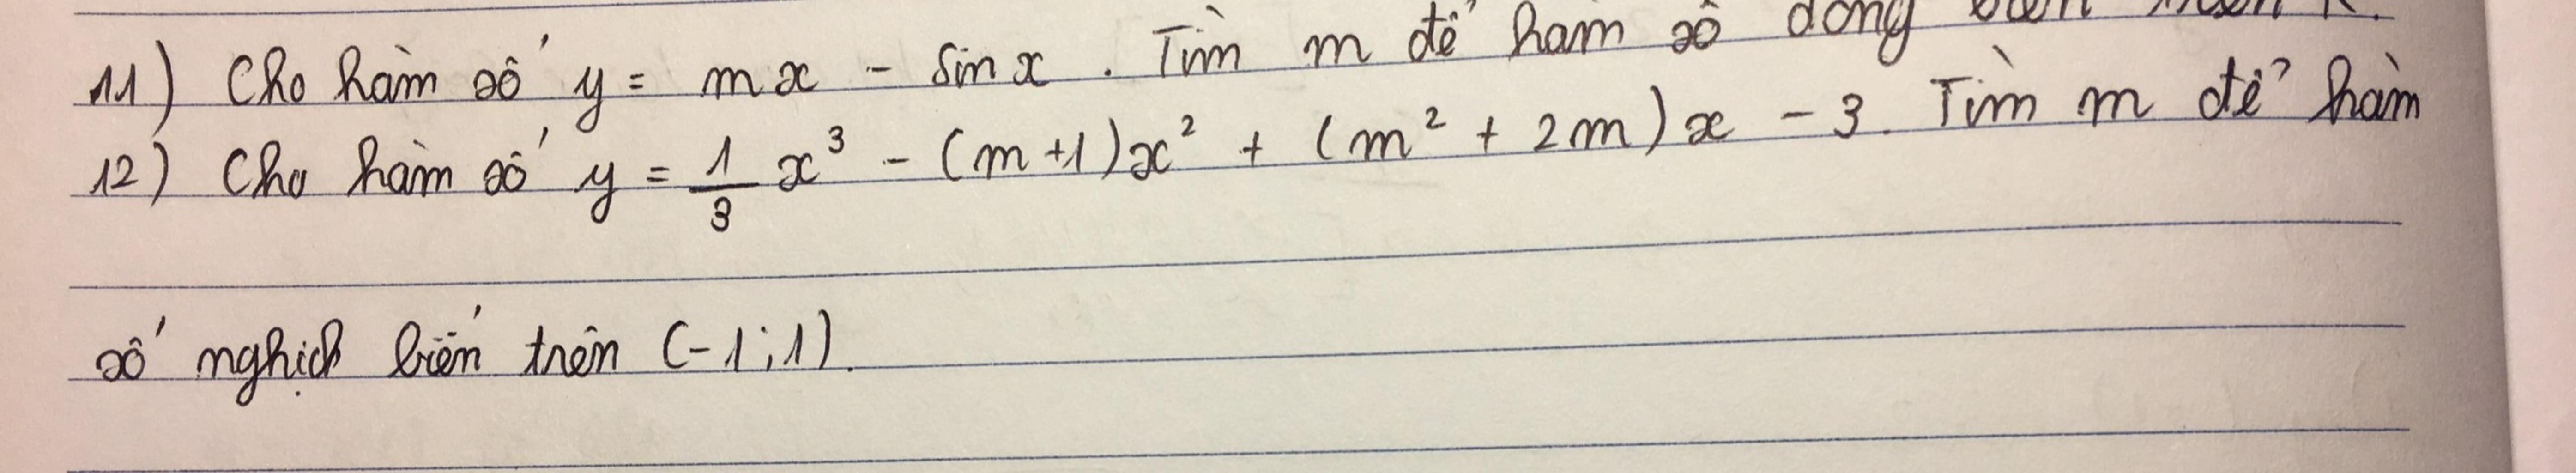 11) Cho hàm số y = mx - sin x. Tìm m để hàm số đồng biến trên R.
12) Cho hàm số y = \frac{1}{3} x³ - (m+1)x² + (m² + 2m)x - 3. Tìm m để hàm
số nghịch biến trên (-1;1).